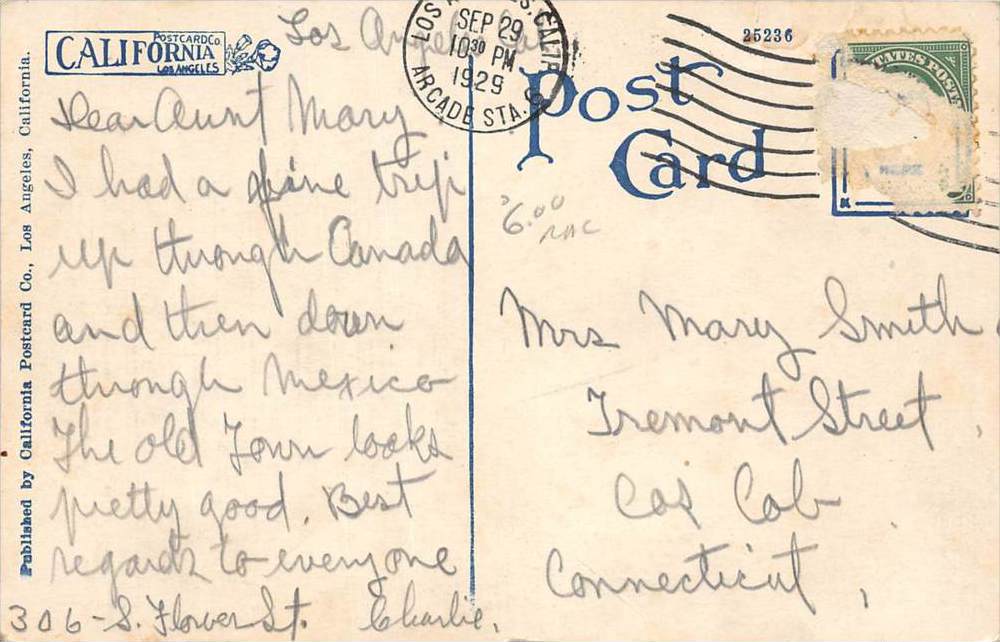 Los Angeles
POSTCARD Co.
CALIFORNIA
LOS ANGELES
Dear Aunt Mary
I had a fine trip
up through Canada
and then down
through Mexico
The old Town looks
pretty good. Best
regards to everyone
306-S. Flower St. Charlie,
Published by California Postcard Co., Los Angeles, California.
LOS ANGELES, CALIF.
SEP 29
10 30 PM
1929
ARCADE STA.
25236
Post
Card
$6.00
Mrs Mary Smith
Tremont Street,
Cos Cob
Connecticut,